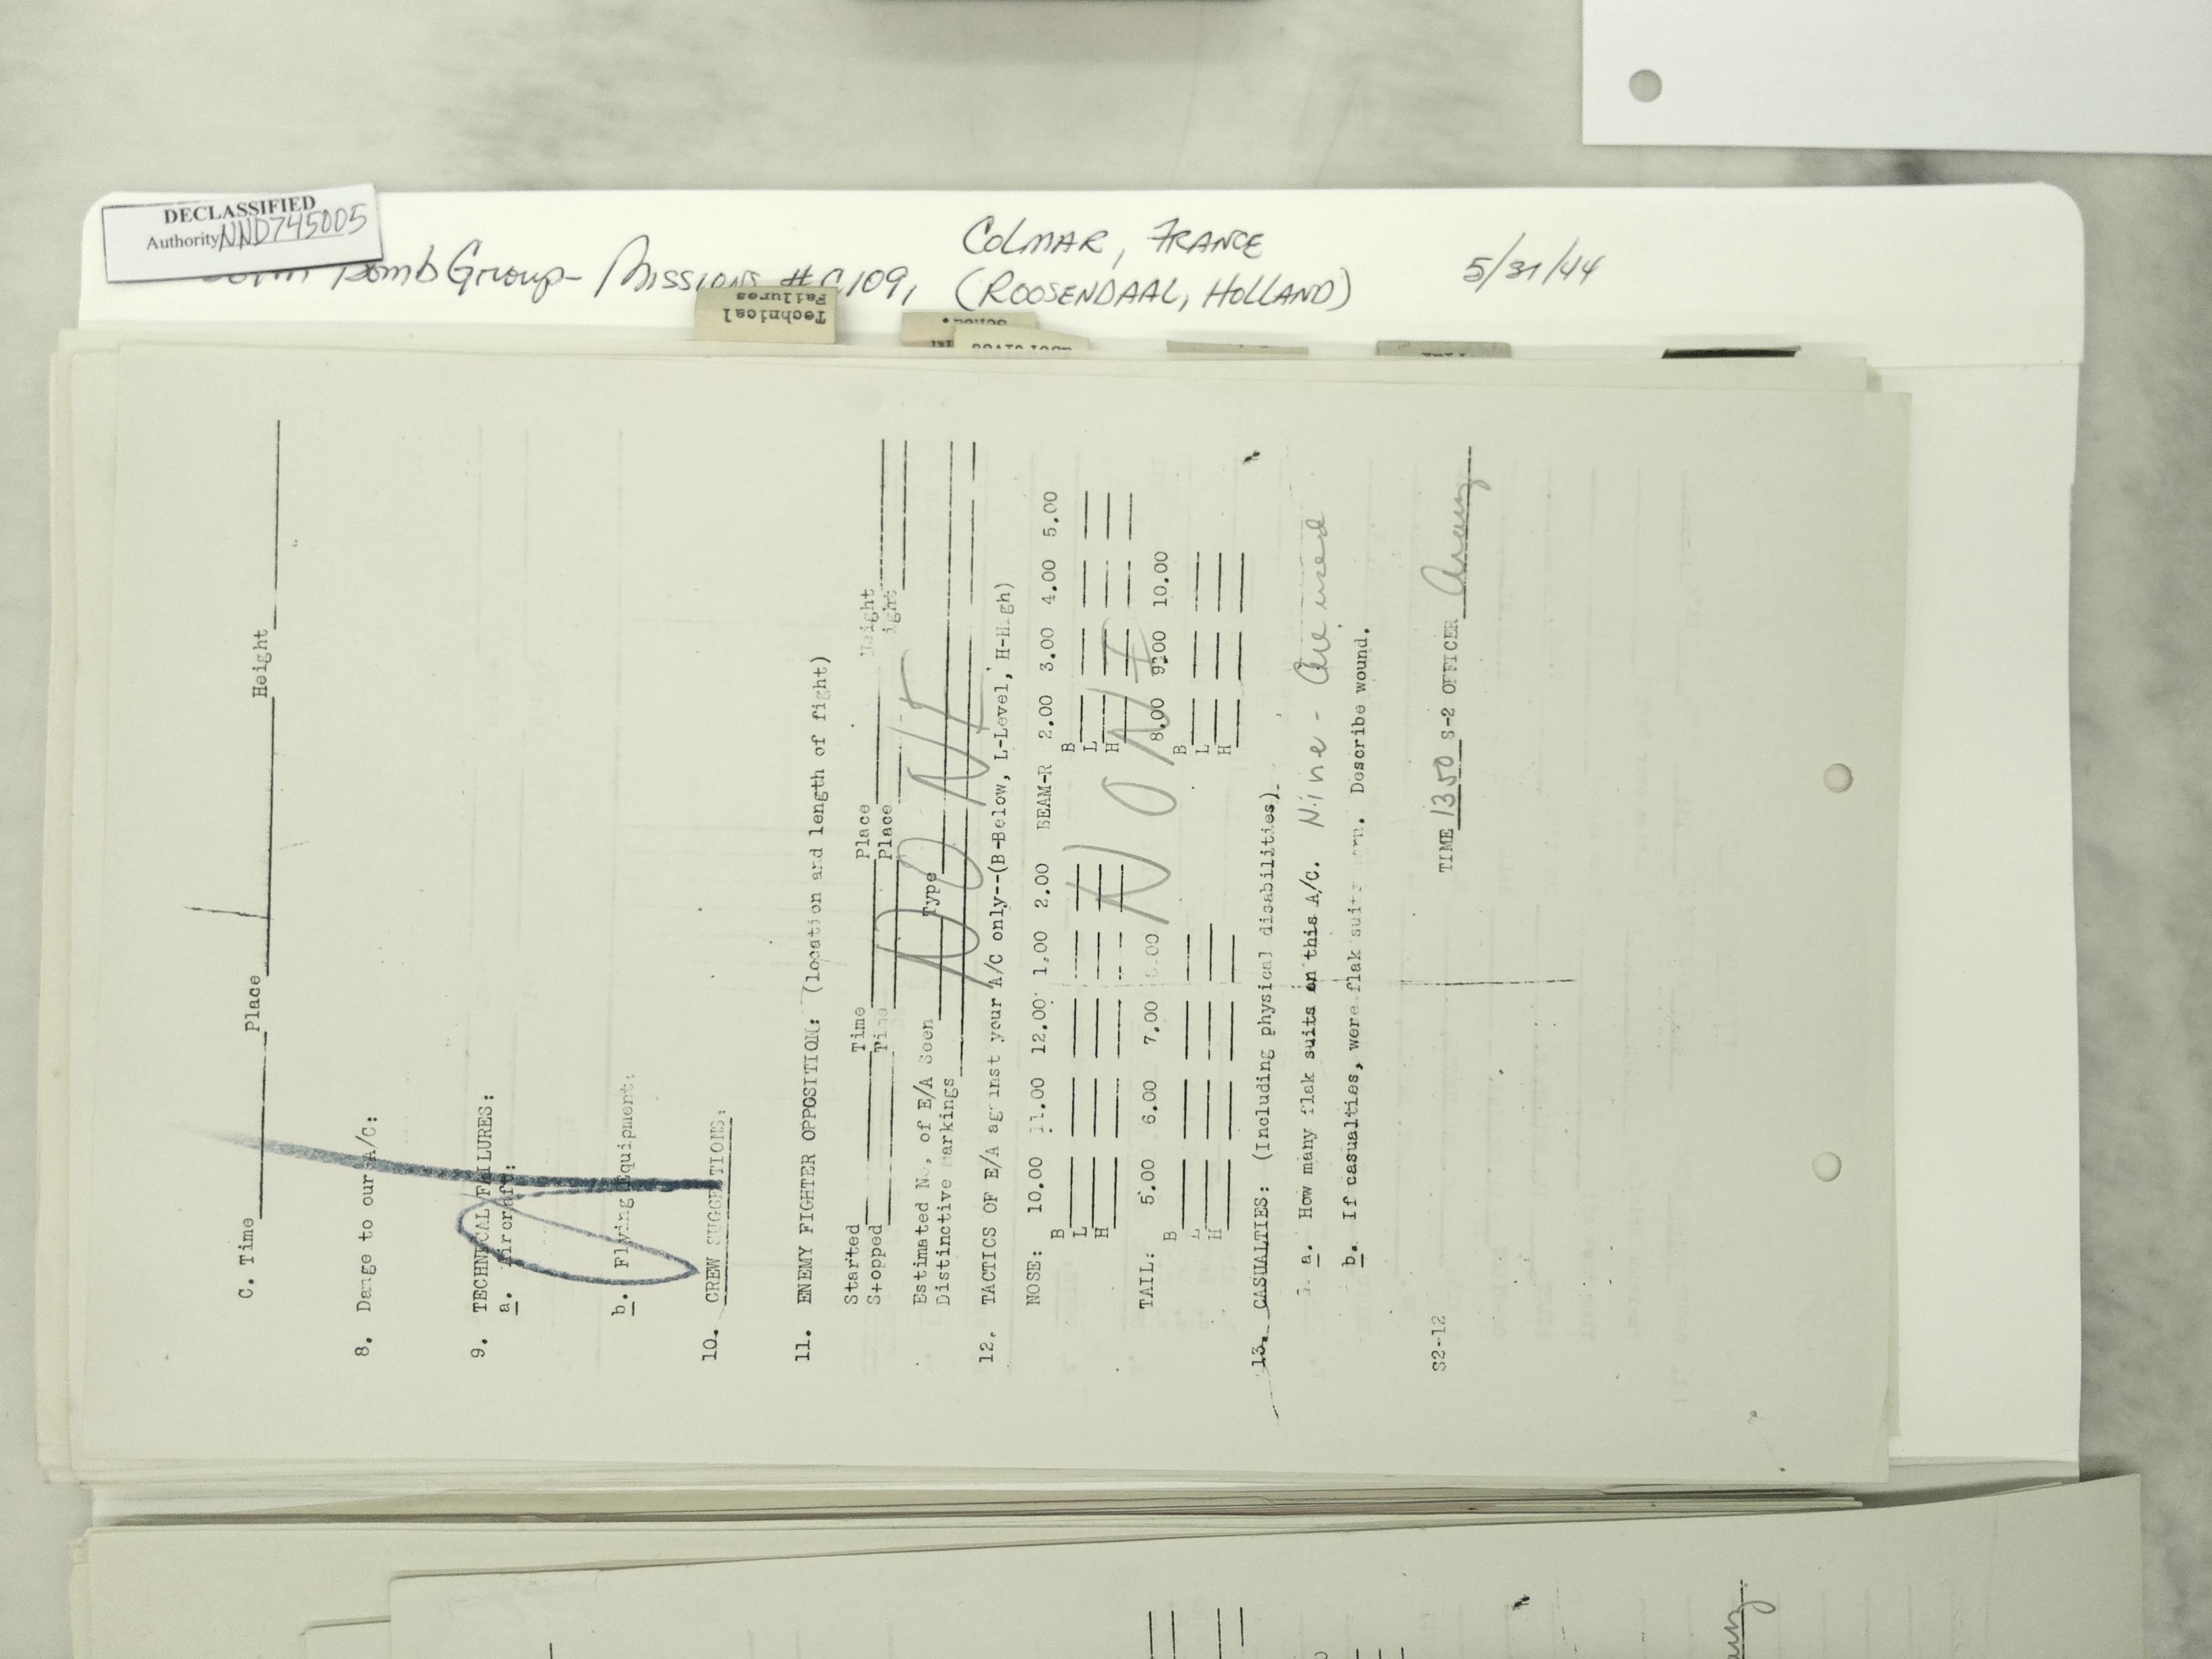 DECLASSIFIED
Authority NND745005
Bomb Group - Missions #C109,
COLMAR, FRANCE
(ROOSENDAAL, HOLLAND)
5/31/44
Technical
Failures
C. Time Place Height
8. Damage to our A/C:
9. TECHNICAL FAILURES:
a. Aircraft:
b. Flying Equipment:
10. CREW SUGGESTIONS:
11. ENEMY FIGHTER OPPOSITION: (location and length of fight)
Started Time Place Height
Stopped Time Place ight
Estimated No. of E/A Seen Type
Distinctive markings
NONE
12. TACTICS OF E/A against your A/C only--(B-Below, L-Level, H-High)
NOSE: 10.00 11.00 12.00 1.00 2.00 BEAM-R 2.00 3.00 4.00 5.00
B B
L L
H H
NONE
TAIL: 5.00 6.00 7.00 8.00 9.00 10.00
B B
L L
H H
13. CASUALTIES: (Including physical disabilities).
a. How many flak suits on this A/C. Nine - All used
b. If casualties, were flak suits worn. Describe wound.
TIME 1350 S-2 OFFICER
S2-12